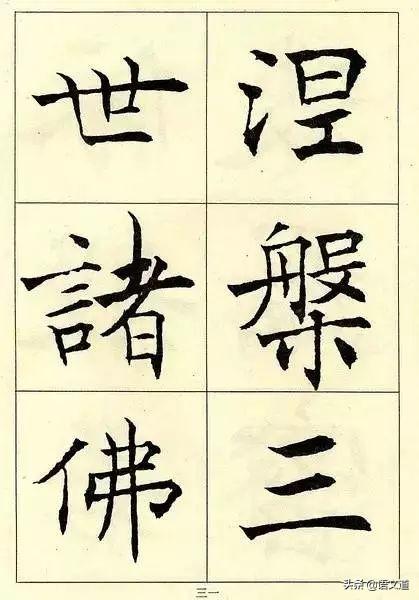 涅槃三
世諸佛
三一
头条 @语文道